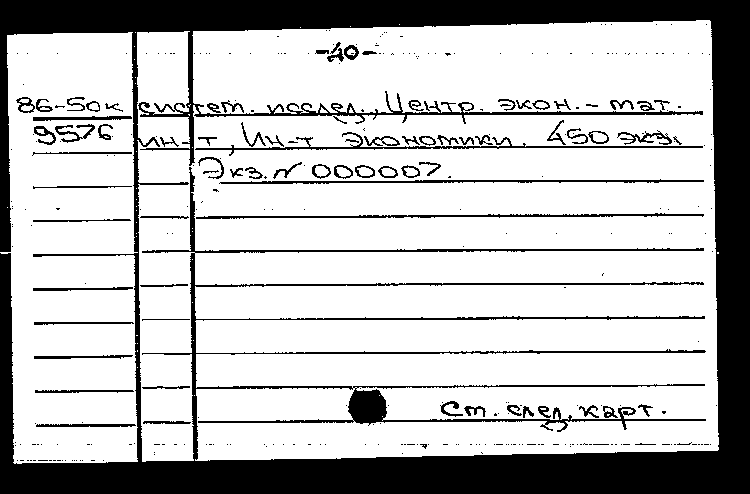 -40-
86-50к систем. исслед., Центр. экон.-мат.
9576 ин-т, Ин-т экономики. 450 экз.
Экз. N 000007.
См. след. карт.